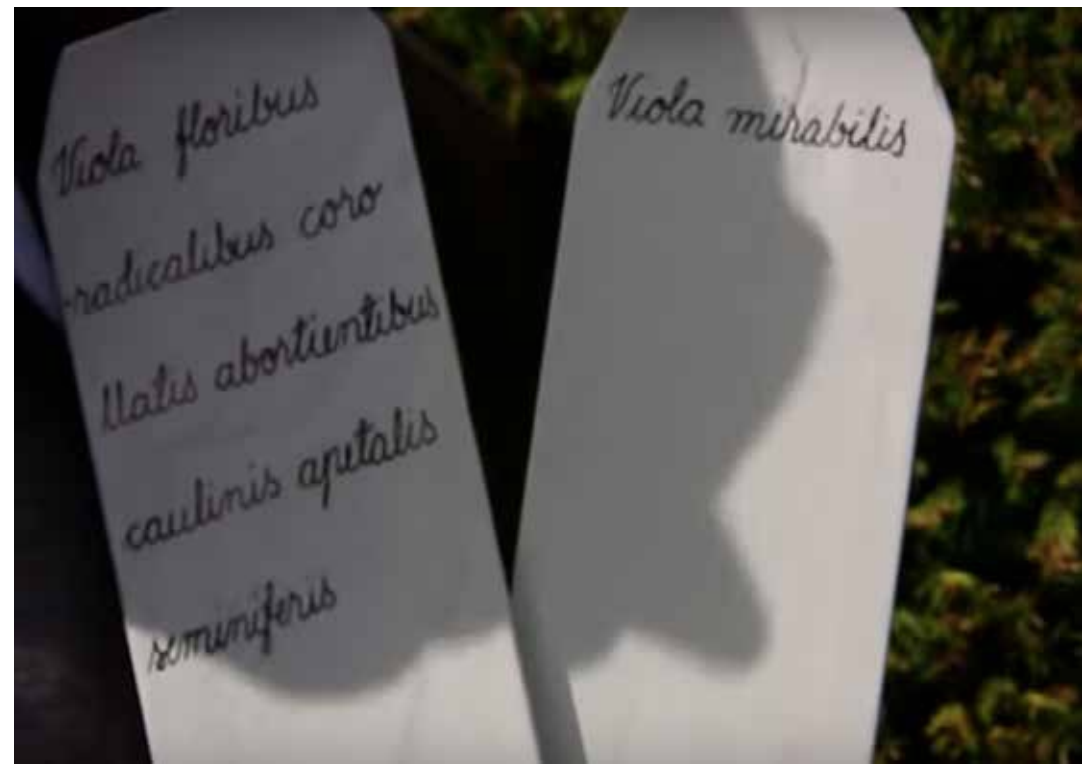 Viola floribus
radicalibus coro
llatis abortientibus
caulinis apetalis
seminiferis
Viola mirabilis